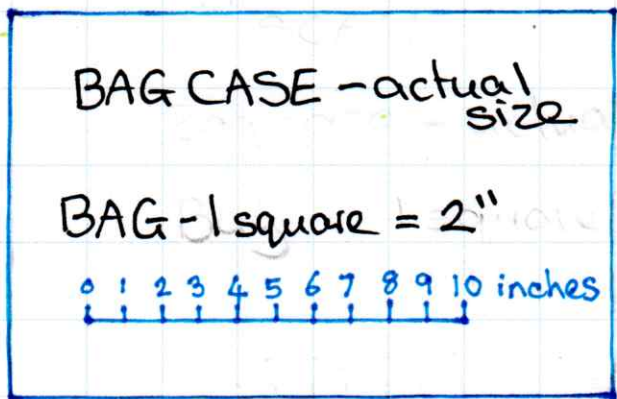 BAG CASE - actual
size
BAG - 1 square = 2"
0 1 2 3 4 5 6 7 8 9 10 inches